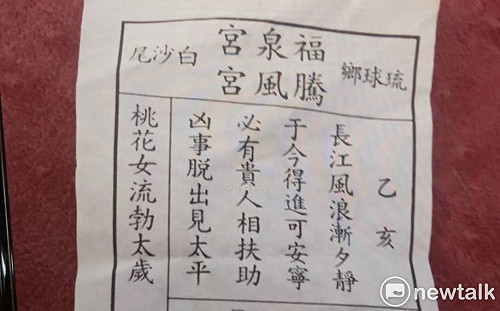 琉球鄉
福泉宮
騰風宮
白沙尾
乙亥
長江風浪漸夕靜
于今得進可安寧
必有貴人相扶助
凶事脫出見太平
桃花女流勃太歲
newtalk